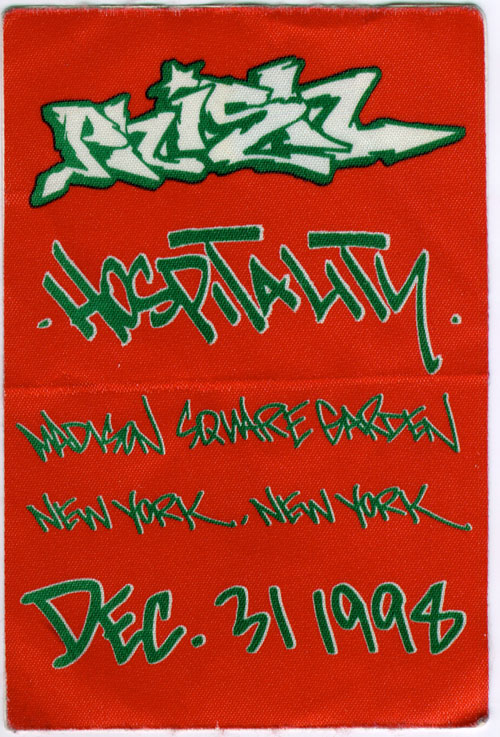 PHISH
HOSPITALITY.
MADISON SQUARE GARDEN
NEW YORK, NEW YORK.
DEC. 31 1998